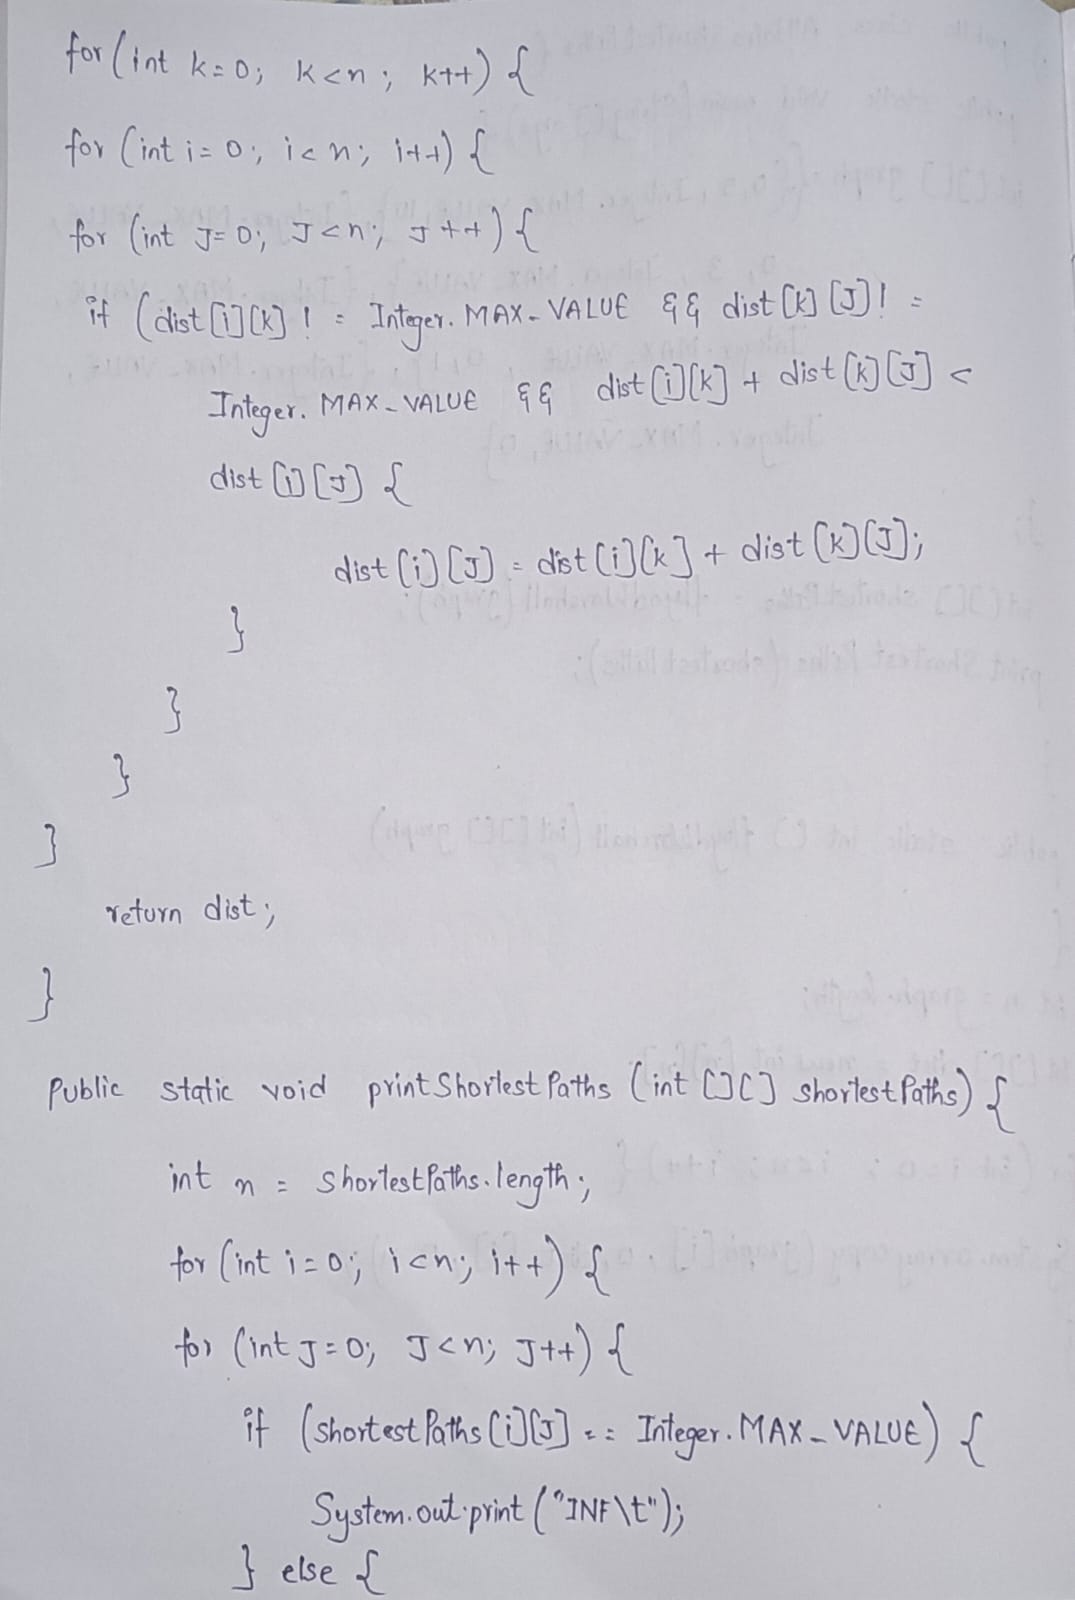 for (int k=0; k<n; k++) {
for (int i=0; i<n; i++) {
for (int J=0; J<n; J++) {
if (dist [i][k] ! = Integer. MAX_VALUE && dist [k] [J] ! =
Integer. MAX_VALUE && dist [i][k] + dist [k] [J] <
dist [i] [J] {
dist [i] [J] = dist [i][k] + dist [k][J];
}
}
}
}
return dist;
}
Public static void print Shortest Paths (int [][] shortest Paths) {
int n = shortest Paths. length;
for (int i=0; i<n; i++) {
for (int J=0; J<n; J++) {
if (shortest Paths [i][J] == Integer. MAX_VALUE) {
System.out.print ("INF\t");
} else {